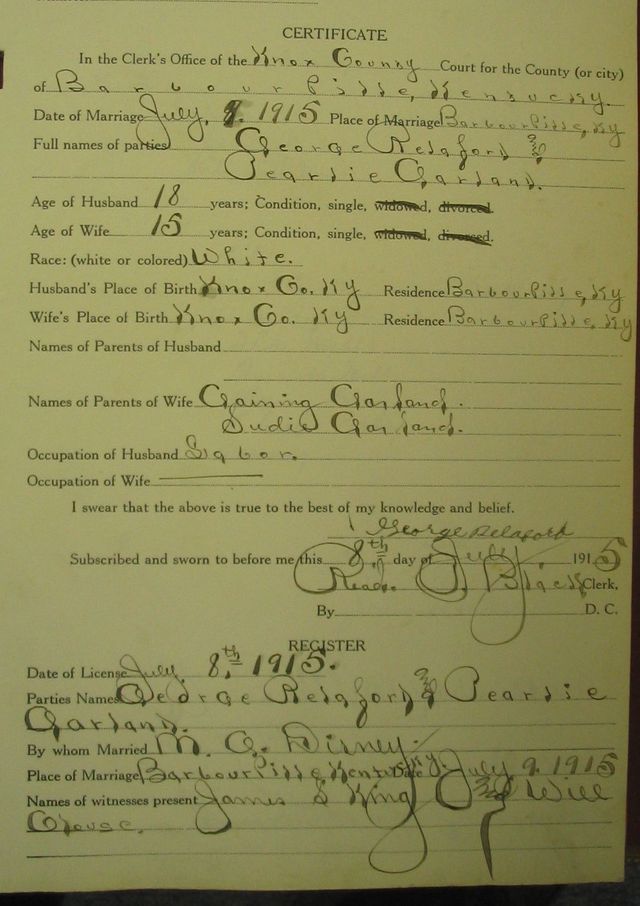 CERTIFICATE
In the Clerk's Office of the Knox County Court for the County (or city)
of Barbourville, Kentucky.
Date of Marriage July, 9. 1915 Place of Marriage Barbourville, Ky
Full names of parties George Relaford &
Pearlie Garland.
Age of Husband 18 years; Condition, single, widowed, divorced.
Age of Wife 15 years; Condition, single, widowed, divorced.
Race: (white or colored) White.
Husband's Place of Birth Knox Co. Ky Residence Barbourville, Ky
Wife's Place of Birth Knox Co. Ky Residence Barbourville, Ky
Names of Parents of Husband
Names of Parents of Wife Garland.
Sudie Garland.
Occupation of Husband Labor.
Occupation of Wife
I swear that the above is true to the best of my knowledge and belief.
George Relaford
Subscribed and sworn to before me this 8th day of July, 1915
Read. Black Clerk.
By D. C.
REGISTER
Date of License July, 8th 1915.
Parties Names George Relaford & Pearlie
Garland.
By whom Married M. C. Disney.
Place of Marriage Barbourville, Kentucky. Date July 9. 1915
Names of witnesses present James S King and Will